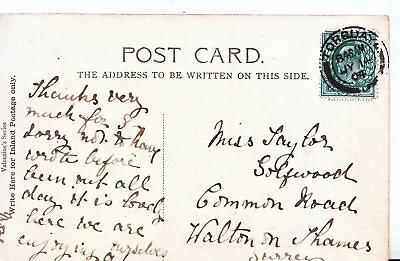 POST CARD.
THE ADDRESS TO BE WRITTEN ON THIS SIDE.
Valentine's Series
Write Here for Inland Postage only.
Thanks very
much for
sorry not to have
wrote before
been out all
day it is lovely
here we are
enjoying ourselves
Miss Taylor
Common Road
Walton on Thames
Surrey
HORSHAM